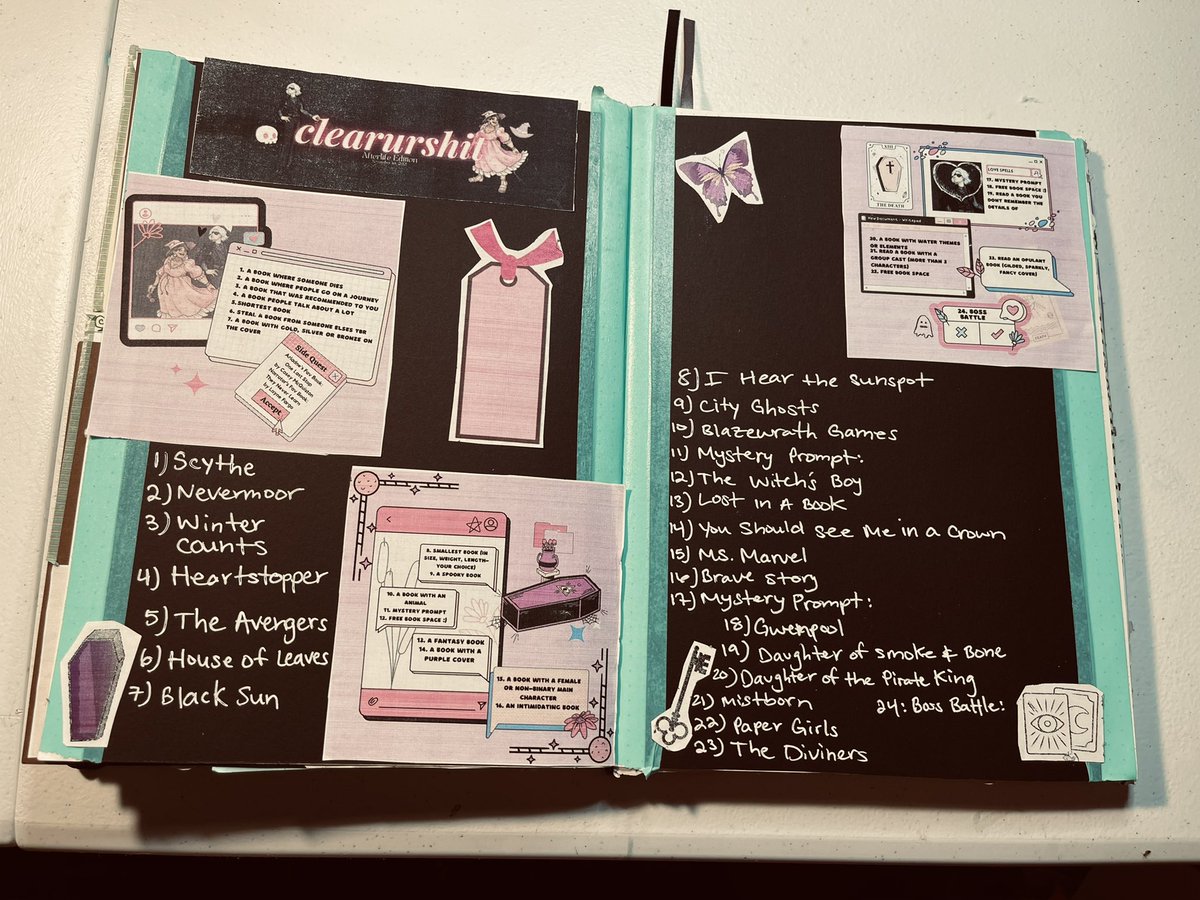 clearurshit
Afterlife Edition
1. A BOOK WHERE SOMEONE DIES
2. A BOOK WHERE PEOPLE GO ON A JOURNEY
3. A BOOK THAT WAS RECOMMENDED TO YOU
4. A BOOK PEOPLE TALK ABOUT A LOT
5. SHORTEST BOOK
6. STEAL A BOOK FROM SOMEONE ELSES TBR
7. A BOOK WITH GOLD, SILVER OR BRONZE ON
THE COVER
Side Quest
Fav Book:
One Last Stop
by Casey McQuiston
Narrator's Fav Book:
They Never Learn
by Layne Fargo
Accept
1) Scythe
2) Nevermoor
3) Winter
Counts
4) Heartstopper
5) The Avengers
6) House of Leaves
7) Black Sun
8. SMALLEST BOOK (IN
SIZE, WEIGHT, LENGTH-
YOUR CHOICE)
9. A SPOOKY BOOK
10. A BOOK WITH AN
ANIMAL
11. MYSTERY PROMPT
12. FREE BOOK SPACE :)
13. A FANTASY BOOK
14. A BOOK WITH A
PURPLE COVER
15. A BOOK WITH A FEMALE
OR NON-BINARY MAIN
CHARACTER
16. AN INTIMIDATING BOOK
XIII
THE DEATH
LOVE SPELLS
17. MYSTERY PROMPT
18. FREE BOOK SPACE :)
19. READ A BOOK YOU
DONT REMEMBER THE
DETAILS OF
New Document - Writepad
20. A BOOK WITH WATER THEMES
OR ELEMENTS
21. READ A BOOK WITH A
GROUP CAST (MORE THAN 2
CHARACTERS)
22. FREE BOOK SPACE
23. READ AN OPULANT
BOOK (GILDED, SPARKLY,
FANCY COVER)
24. BOSS
BATTLE
8) I Hear the Sunspot
9) City Ghosts
10) Blazewrath Games
11) Mystery Prompt:
12) The Witch's Boy
13) Lost In A Book
14) You Should See Me in a Crown
15) Ms. Marvel
16) Brave Story
17) Mystery Prompt:
18) Gwenpool
19) Daughter of Smoke & Bone
20) Daughter of the Pirate King
21) Mistborn
24: Boss Battle:
22) Paper Girls
23) The Diviners